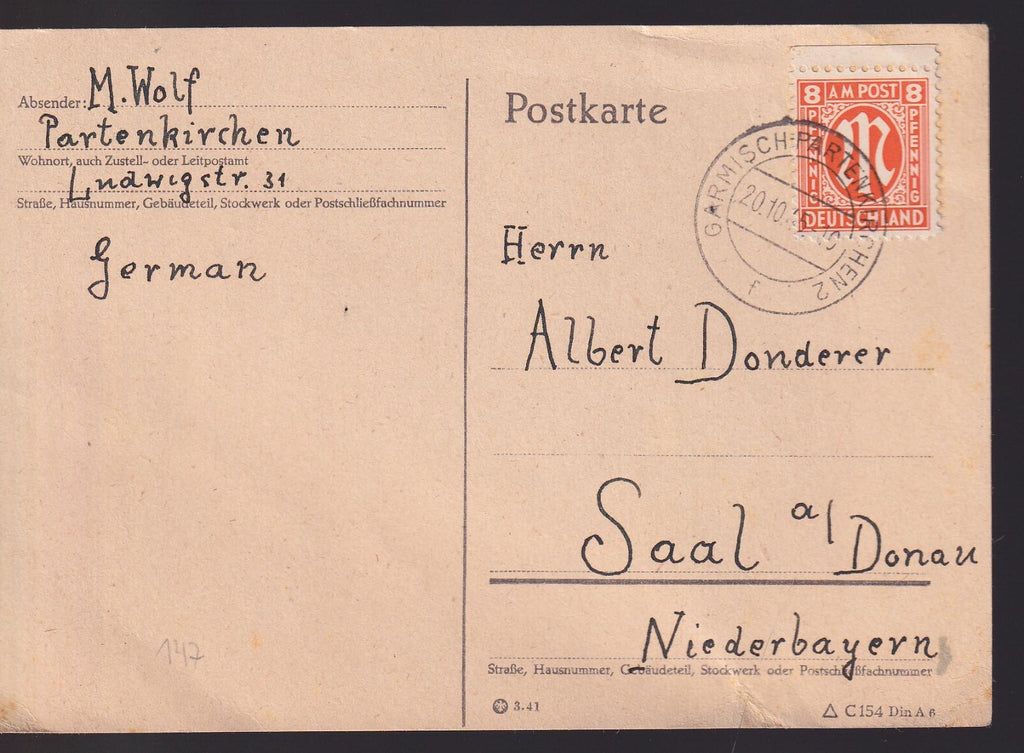 Absender: M. Wolf
Partenkirchen
Wohnort, auch Zustell- oder Leitpostamt
Ludwigstr. 31
Straße, Hausnummer, Gebäudeteil, Stockwerk oder Postschließfachnummer
German
147
Postkarte
8 AM POST 8
PFENNIG PFENNIG
DEUTSCHLAND
GARMISCH-PARTENKIRCHEN 2
20.10.
f
Herrn
Albert Donderer
Saal a/Donau
Niederbayern
Straße, Hausnummer, Gebäudeteil, Stockwerk oder Postschließfachnummer
3.41
C 154 Din A 6